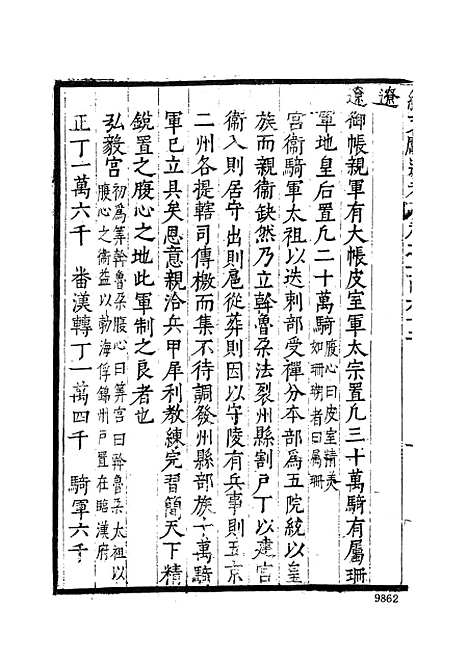 遼
遼
御帳親軍有大帳皮室軍太宗置凡三十萬騎有屬珊
軍地皇后置凡二十萬騎腹心曰皮室精美
如珊瑚者曰屬珊
宮衛騎軍太祖以迭剌部受禪分本部爲五院統以皇
族而親衛缺然乃立斡魯朶法裂州縣割戶丁以建宮
衛入則居守出則扈從葬則因以守陵有兵事則五京
二州各提轄司傳檄而集不待調發州縣部族十萬騎
軍已立具矣恩意親洽兵甲犀利教練完習簡天下精
銳置之腹心之地此軍制之良者也
弘毅宮初爲算斡魯朶腹心曰算宮曰斡魯朶太祖以
腹心之衛益以渤海俘錦州戶置在臨潢府
正丁一萬六千 蕃漢轉丁一萬四千 騎軍六千
9862